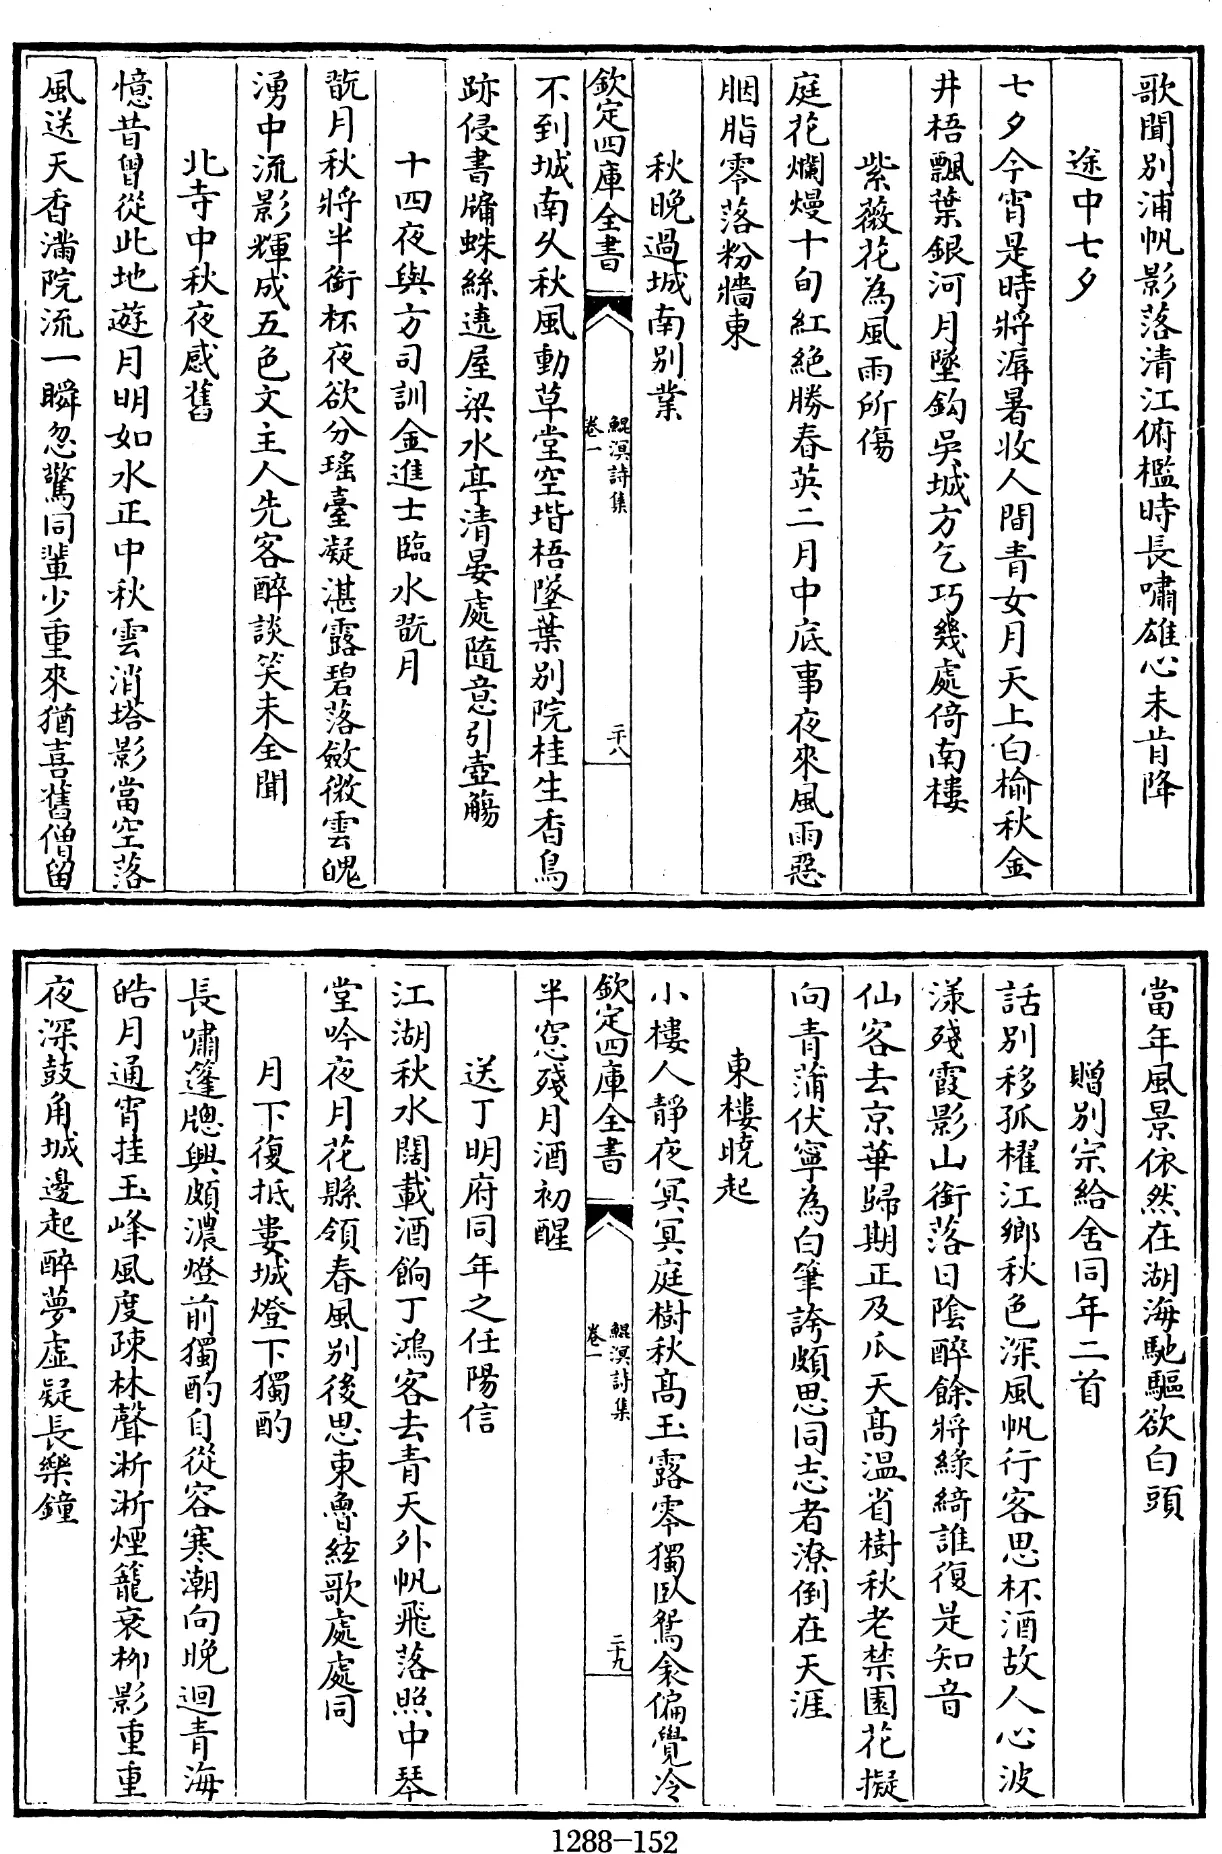 歌聞別浦帆影落清江俯檻時長嘯雄心未肯降
途中七夕
七夕今宵是時將溽暑收人間青女月天上白榆秋金
井梧飄葉銀河月墜鈎吳城方乞巧幾處倚南樓
紫薇花為風雨所傷
庭花爛熳十旬紅絶勝春英二月中底事夜來風雨惡
胭脂零落粉牆東
秋晚過城南別業
欽定四庫全書
鯤溟詩集
卷一
二十八
不到城南久秋風動草堂空堦梧墜葉別院桂生香鳥
跡侵書牗蛛絲遶屋梁水亭清晏處隨意引壺觴
十四夜與方司訓金進士臨水翫月
翫月秋將半銜杯夜欲分瑤臺凝湛露碧落斂微雲魄
湧中流影輝成五色文主人先客醉談笑未全聞
北寺中秋夜感舊
憶昔曾從此地遊月明如水正中秋雲消塔影當空落
風送天香滿院流一瞬忽驚同輩少重來猶喜舊僧留
當年風景依然在湖海馳驅欲白頭
贈別宗給舍同年二首
話別移孤櫂江鄉秋色深風帆行客思杯酒故人心波
漾殘霞影山銜落日陰醉餘將綠綺誰復是知音
仙客去京華歸期正及瓜天髙溫省樹秋老禁園花擬
向青蒲伏寧為白筆誇頗思同志者潦倒在天涯
東樓曉起
小樓人靜夜冥冥庭樹秋髙玉露零獨臥鴛衾偏覺冷
欽定四庫全書
鯤溟詩集
卷一
二十九
半窓殘月酒初醒
送丁明府同年之任陽信
江湖秋水闊載酒餉丁鴻客去青天外帆飛落照中琴
堂吟夜月花縣領春風別後思東魯絃歌處處同
月下復抵婁城燈下獨酌
長嘯篷牕興頗濃燈前獨酌自從容寒潮向晚迴青海
皓月通宵挂玉峰風度疎林聲淅淅煙籠衰栁影重重
夜深鼓角城邊起醉夢虛疑長樂鐘
1288-152